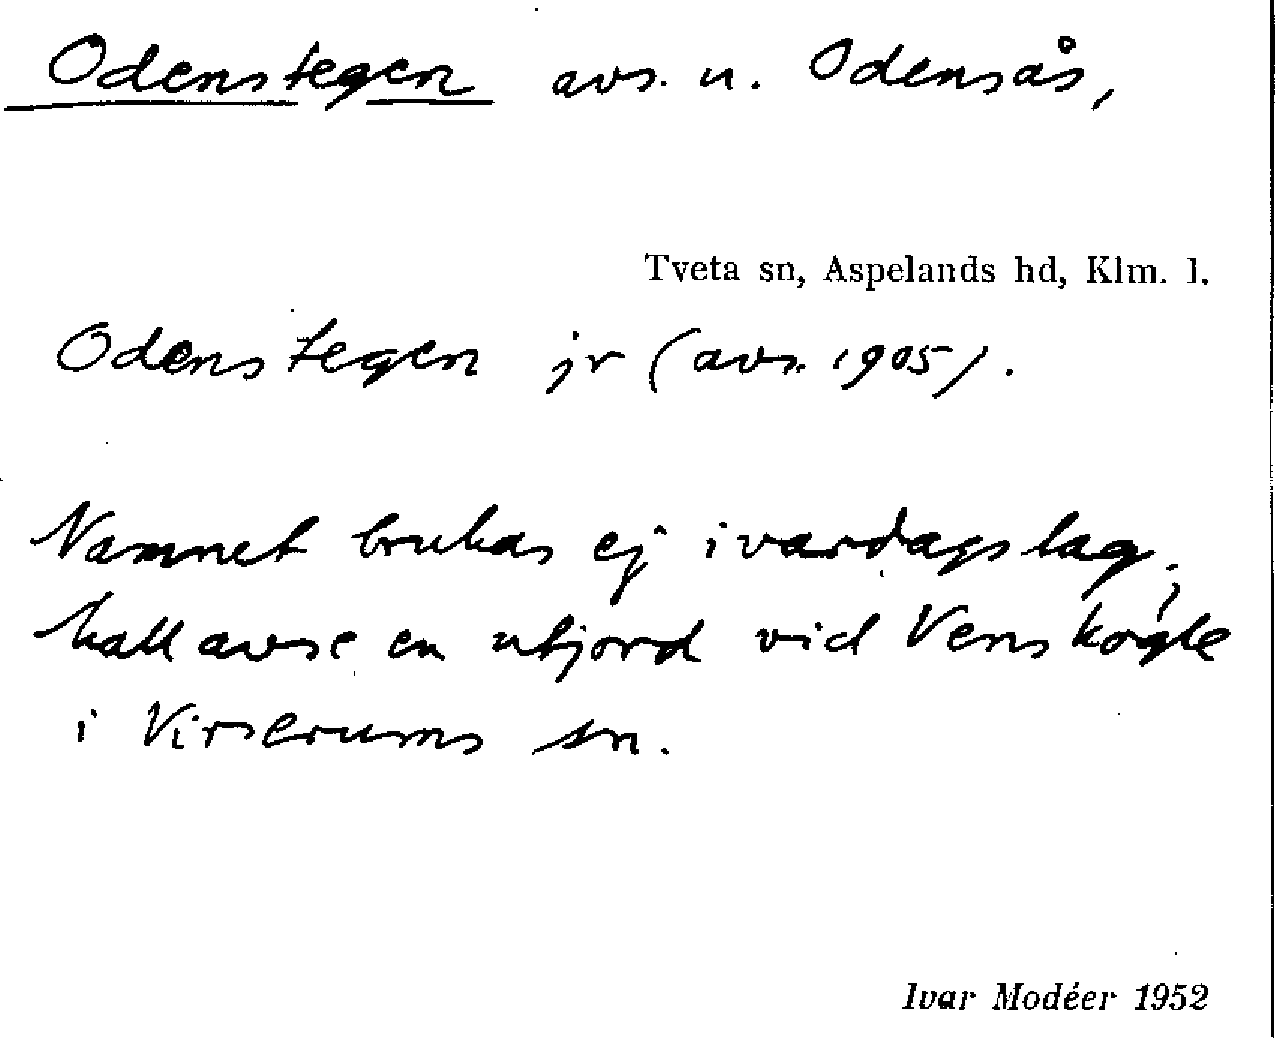 Odenstegen avs. u. Odensås,
Tveta sn, Aspelands hd, Klm. l.
Odenstegen jr (avs. 1905).
Namnet brukas ej i vardagslag;
skall avse en utjord vid
i Virserums sn.
Ivar Modéer 1952